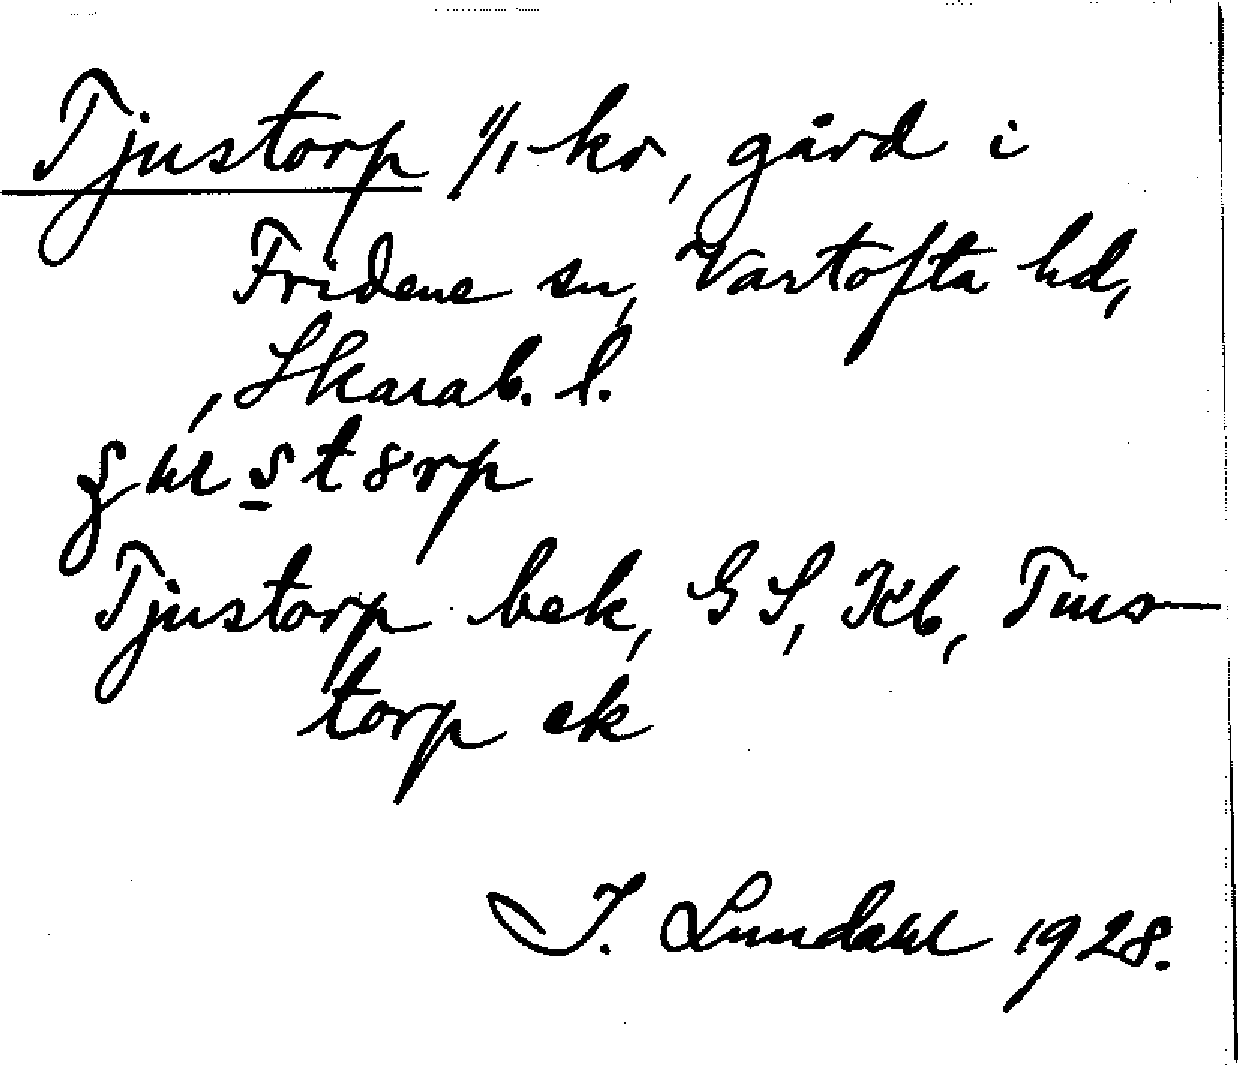 Tjustorp 1/1 kr, gård i
Fridene sn, Vartofta hd,
Skarab. l.
Tjustorp bek, GS, Kb, Tius-
torp ek
I. Lundahl 1928.